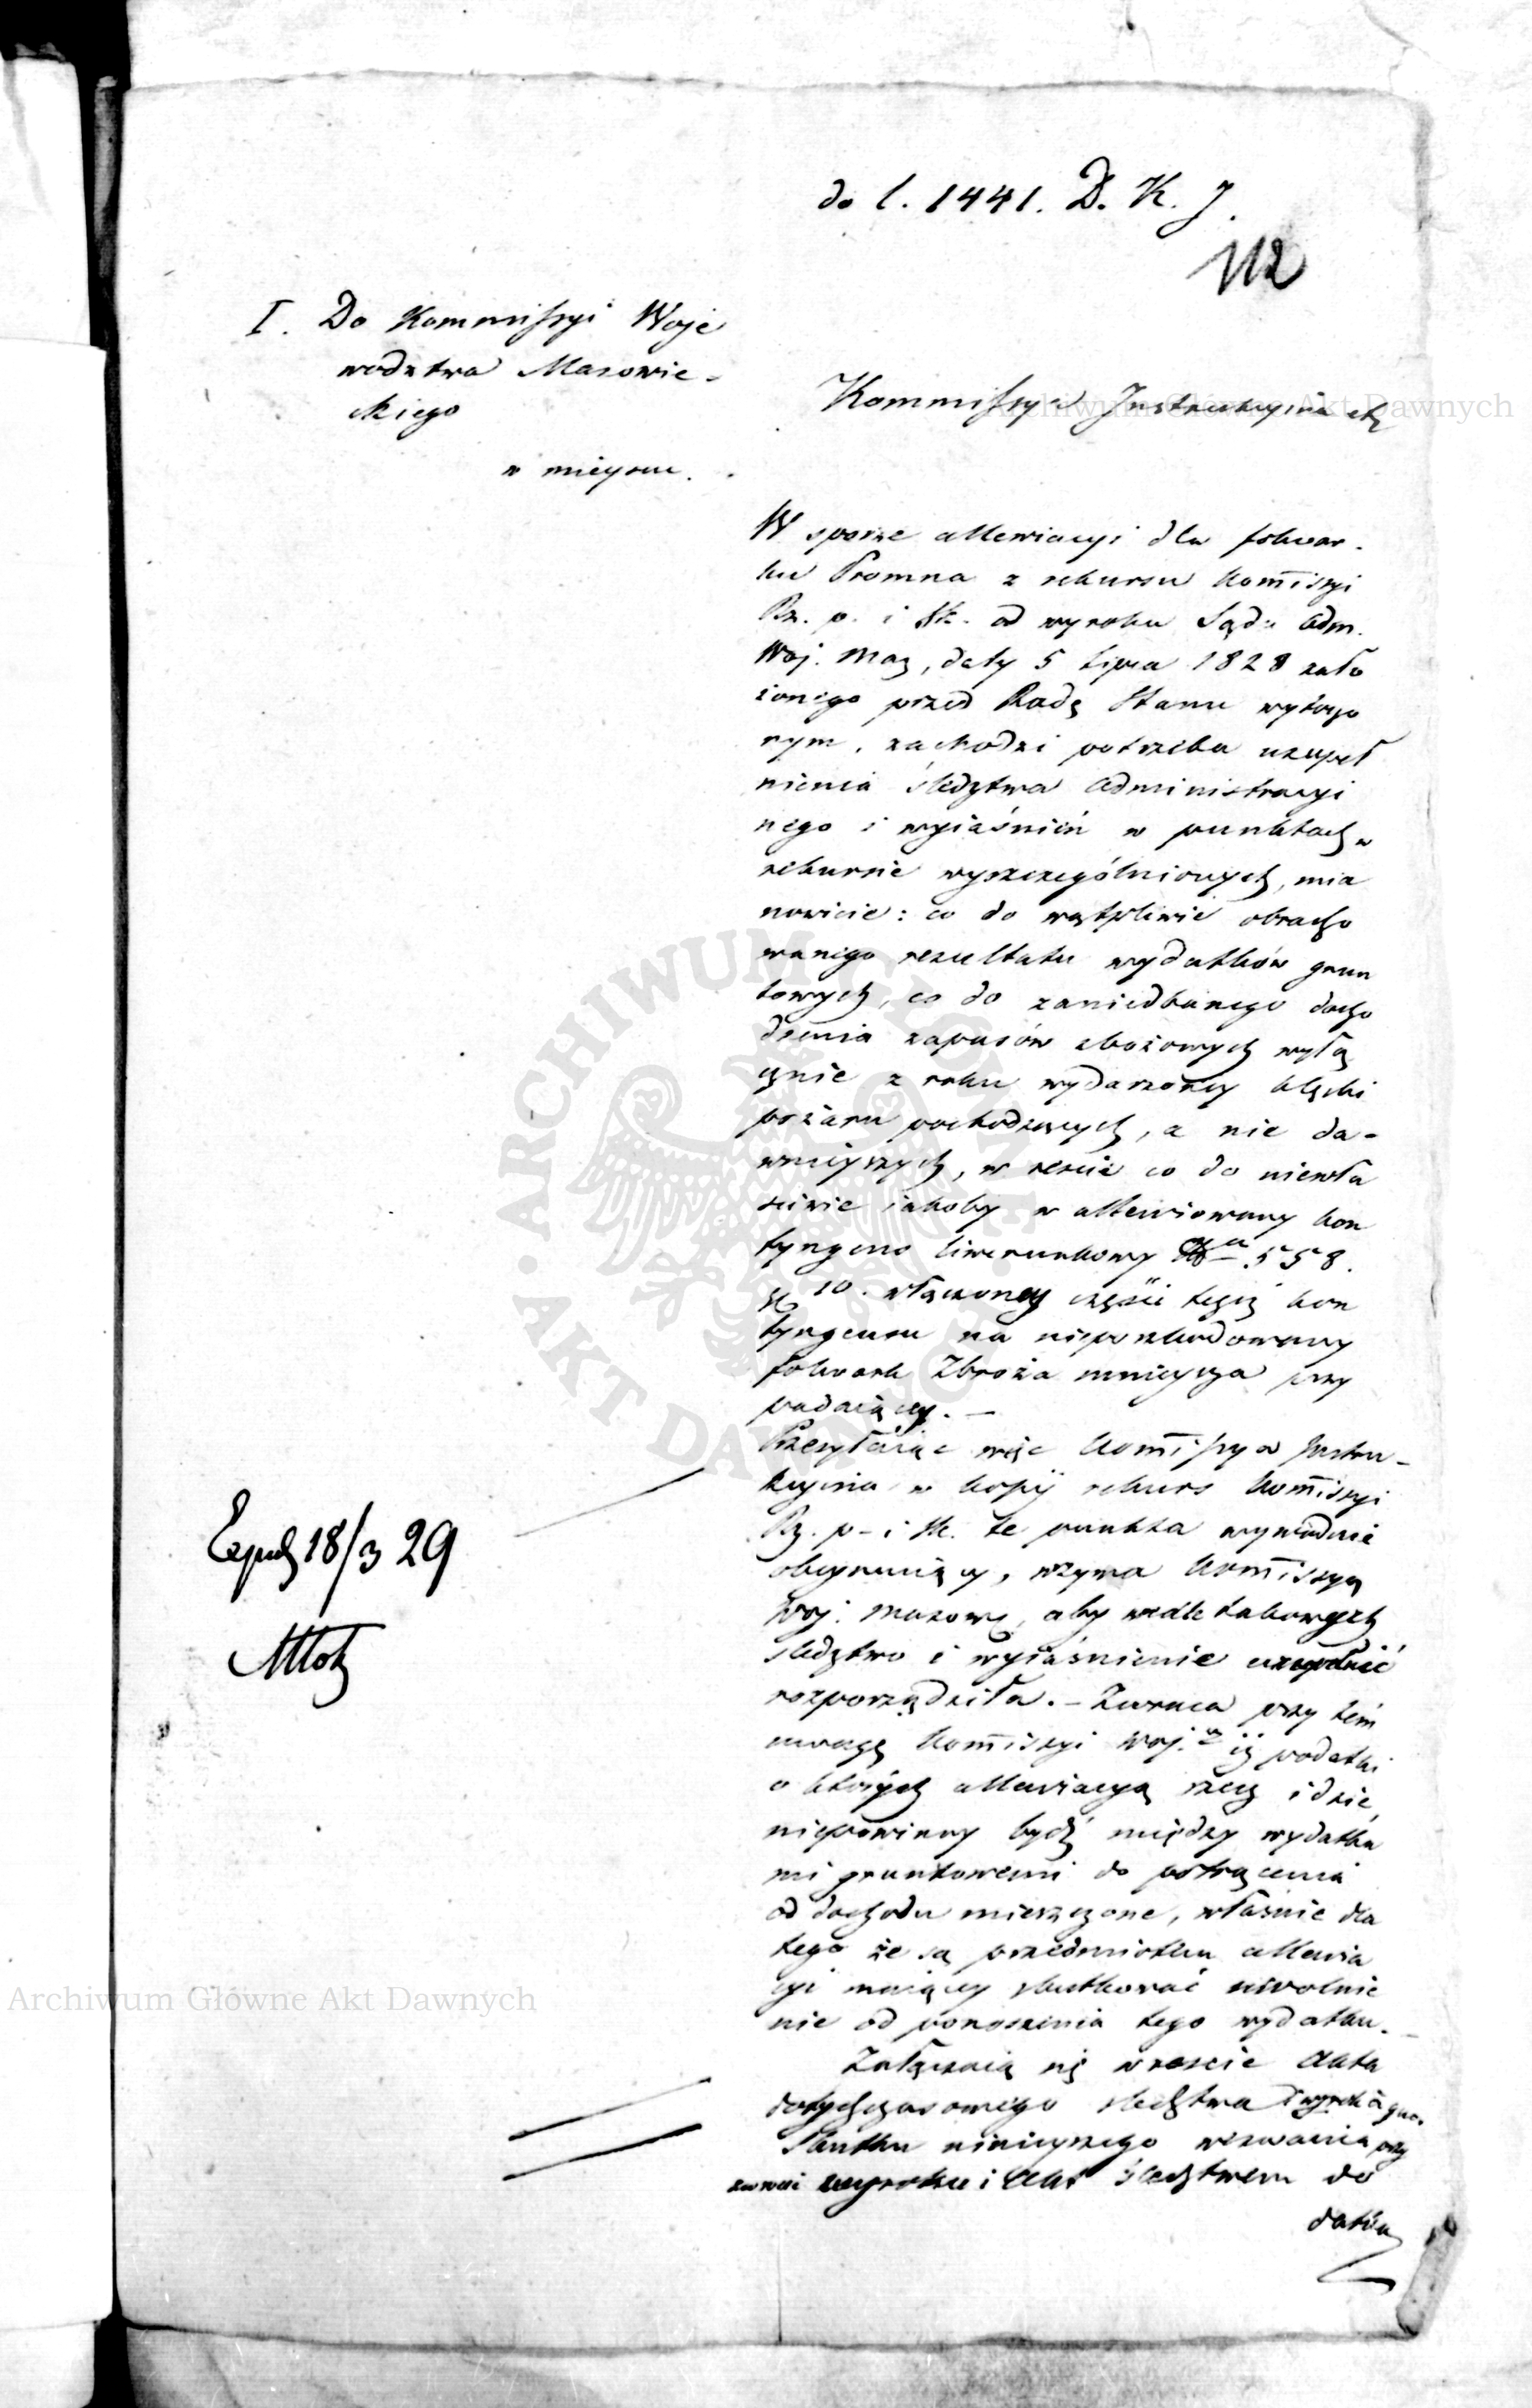 do l. 1441. D. K. J.
112
I. Do Kommissyi Woje
wodztwa Mazowie-
ckiego
w mieyscu.
Kommissya Instrukcyina etc
W sporze allewiacyi dla folwar-
ku Promna z rekursu Kommissyi
Rz. p. i Sk. od wyroku Sądu Adm.
Woj. Maz, daty 5 Lipca 1828 zało
żonego przed Radę Stanu wytoczo
nym, zachodzi potrzeba uzupeł
nienia śledztwa administracyi
nego i wyiaśnień w punktach w
rekursie wyszczególnionych, mia
nowicie: co do wątpliwie obracho
wanego rezultatu wydatków grun
towych, co do zaniedbanego docho
dzenia zapasów zbożowych wyłą
cznie z roku wydarzoney klęski
pożaru pochodzących, a nie da-
wnieyszych, w reście co do niewła
sciwie iakoby w allewiowany kon
tyngens liwerunkowy 558.
gr 10. włączoney części tegoż kon
tyngensu na nieposzkodowany
folwark Zbroża mnieysza przy
padaiącey. —
Przesyłaiąc więc Kommissya Instru-
kcyina w kopii rekurs Kommissyi
Rz. p. i Sk. te punkta wywodnie
obeymuiący, wzywa Kommissyą
Woj. Mazow, aby wedle takowych
śledztwo i wyiaśnienie uzupełnić
rozporządziła. – Zwraca przy tém
uwagę Kommissyi Woj. iż podatki
o których allewiacyą rzecz idzie,
niepowinny bydź między wydatka
mi gruntowemi do potrącenia
od dochodu mieszczone, właśnie dla
tego że są przedmiotem allewia
cyi maiącey skutkować uwolnie
nie od ponoszenia tego wydatku. —
Załączaią się w reście Akta
dotychczasowego śledztwa i wyrok
Skutku ninieyszego wezwania przy
zwrocie wyroku i Akt śledztwem do
datko
Exped 18/3 29